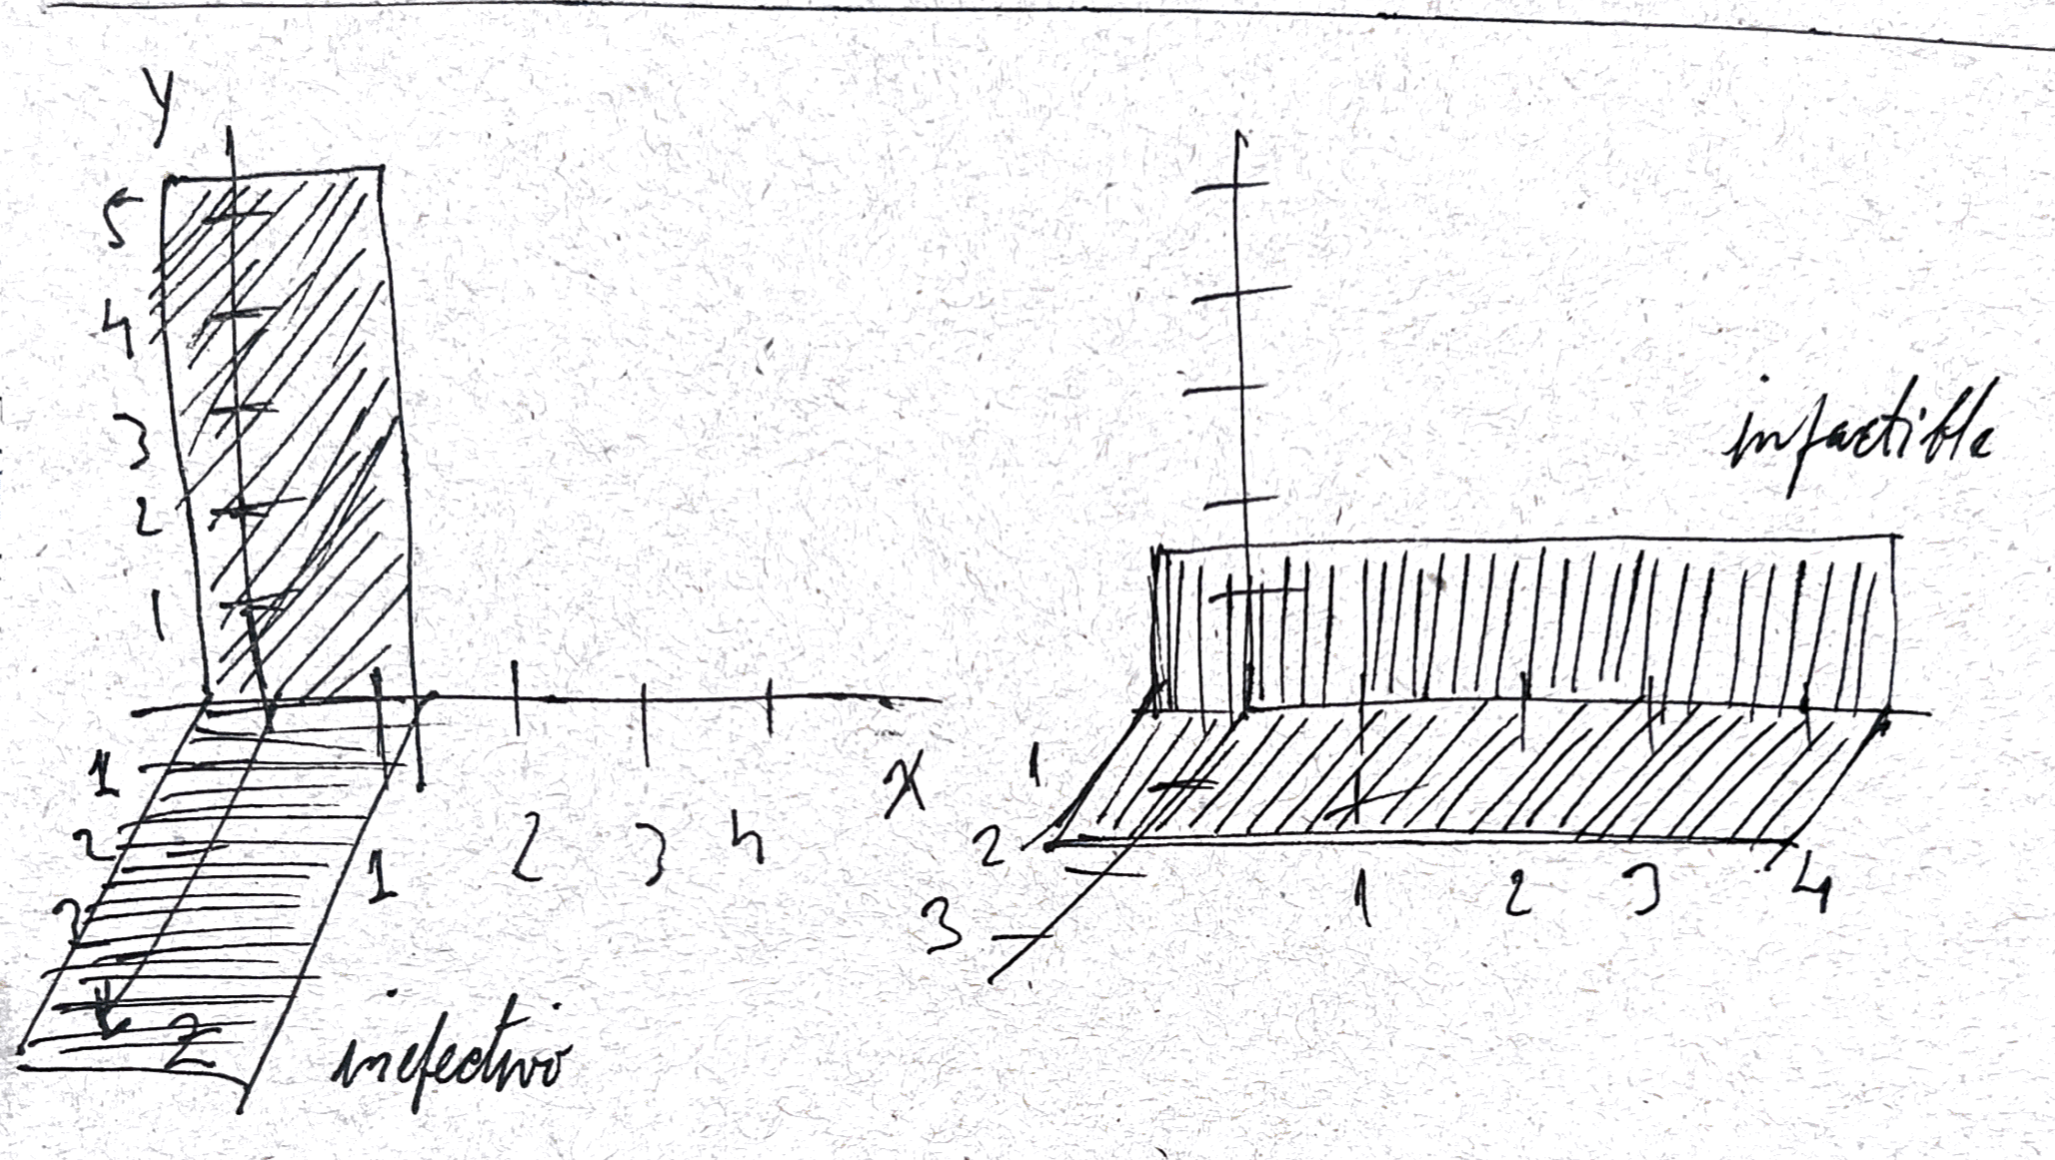 Y
5
4
3
2
1
X
1
2
3
1
2
3
4
Z
inefectivo
infactible
1
2
3
1
2
3
4